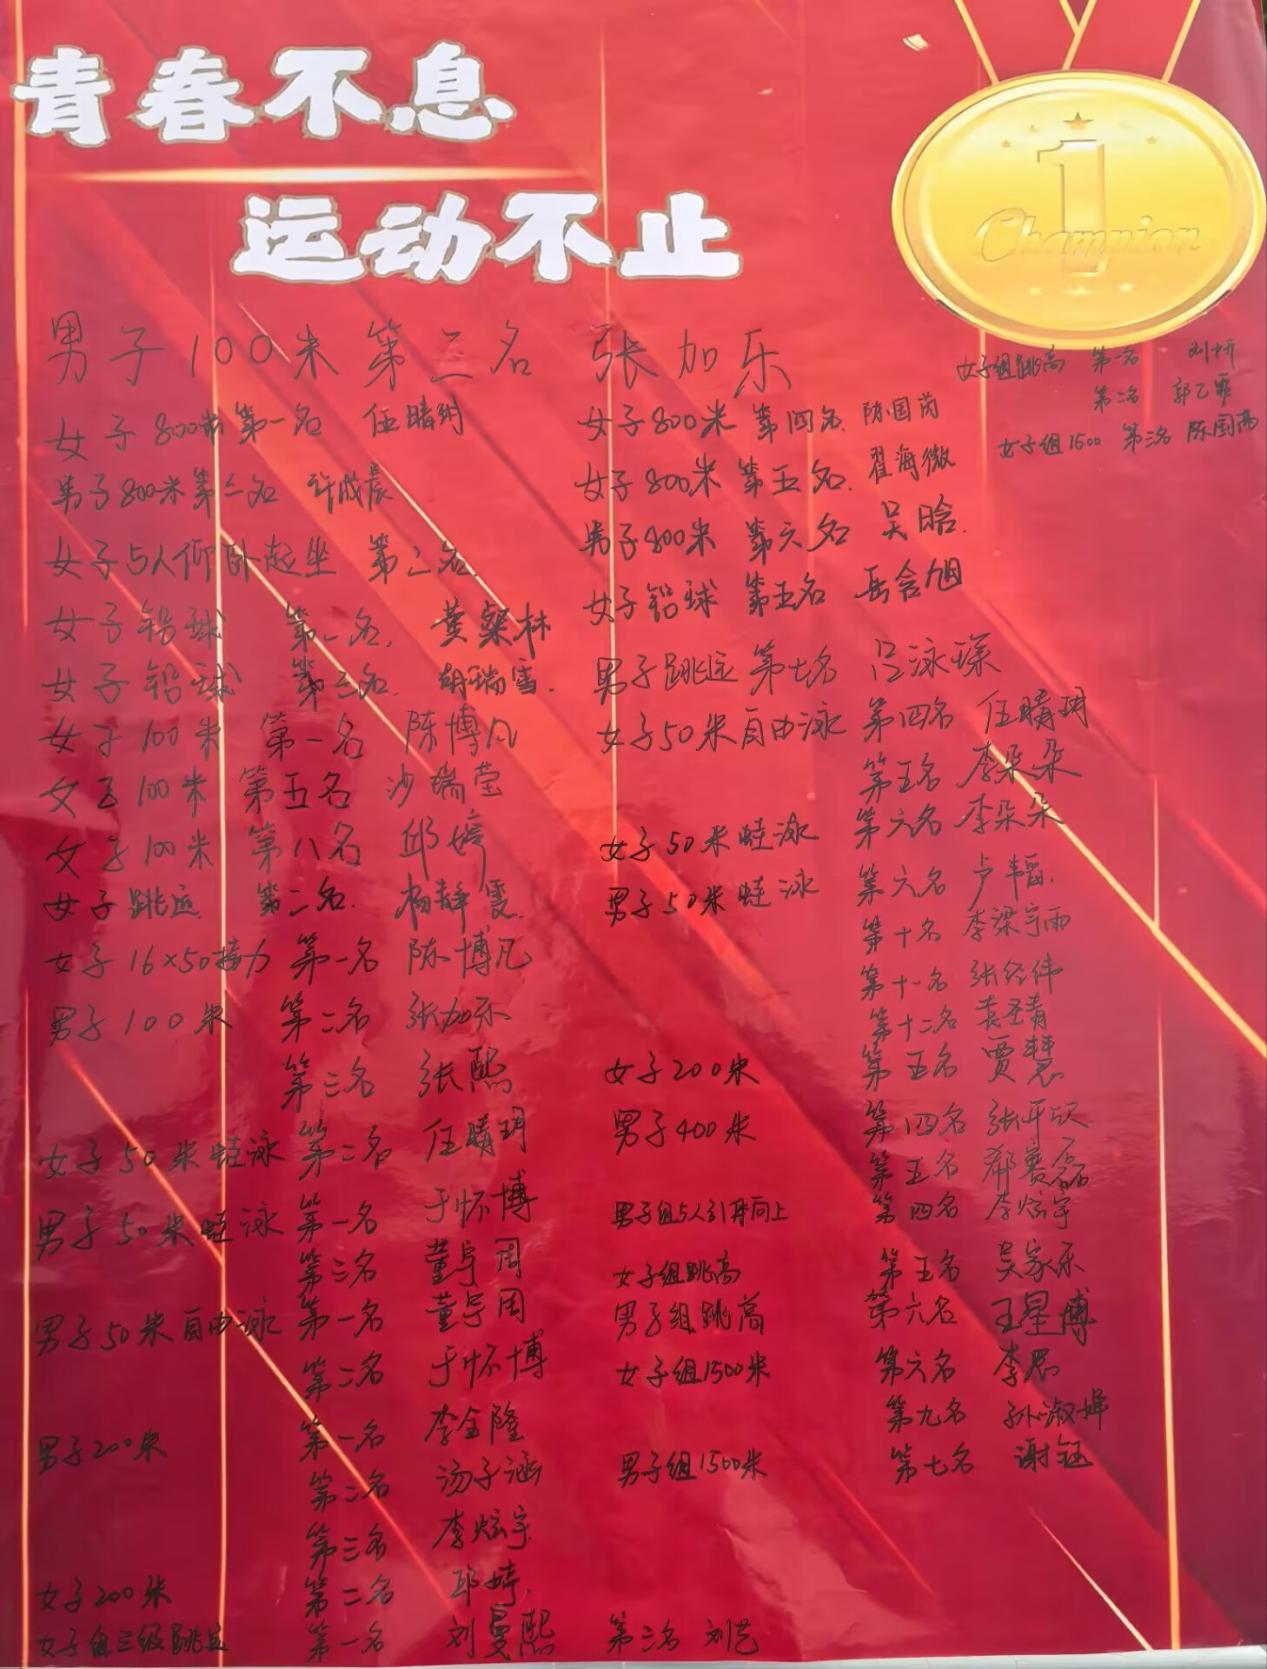 青春不息
运动不止
1
Champion
男子100米 第三名 张加乐
女子800米 第一名 任晴玥
男子800米 第二名 许成晨
女子5人仰卧起坐 第二名
女子铅球 第一名 黄粲林
女子铅球 第三名 胡瑞雪
女子100米 第一名 陈博凡
女子100米 第五名 沙瑞莹
女子100米 第八名 邱婷
女子跳远 第二名 杨静雯
女子16×50接力 第一名 陈博凡
男子100米 第二名 张加乐
第三名 张熙
女子50米蛙泳 第二名 任晴玥
男子50米蛙泳 第一名 于怀博
第三名 董宇周
男子50米自由泳 第一名 董宇周
第二名 于怀博
男子200米 第一名 李金隆
第二名 汤子涵
第三名 李炫宇
女子200米 第二名 邱婷
女子组三级跳远 第一名 刘曼熙 第三名 刘艺
女子组跳高 第一名 刘
第二名 郭乙霏
女子组1500 第三名 陈国芮
女子800米 第四名 陈国芮
女子800米 第五名 翟海微
男子800米 第六名 吴晗
女子铅球 第五名 岳含旭
男子跳远 第七名 吕泳琛
女子50米自由泳 第四名 任晴玥
第五名 李朵朵
女子50米蛙泳 第六名 李朵朵
男子50米蛙泳 第六名 卢韬
第十名 李梁宇雨
第十一名 张经纬
第十二名 袁圣青
女子200米 第五名 贾慧
男子400米 第四名 张平
第五名 郗赛磊
男子组5人引体向上 第四名 李炫宇
女子组跳高 第五名 吴家乐
男子组跳高 第六名 王星博
女子组1500米 第六名 李
第九名 孙淑婵
男子组1500米 第七名 谢钰